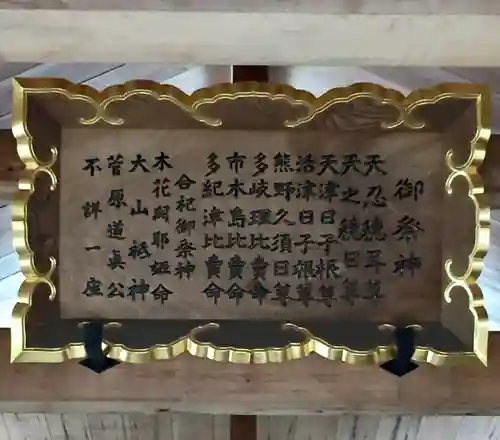 御祭神
天之忍穂耳尊
天之穂日尊
天津日子根尊
活津日子根尊
熊野久須日尊
多岐理比賣命
市木島比賣命
多紀津比賣命
合祀御祭神
木花開耶姫命
大山祇神
菅原道真公
不詳一座